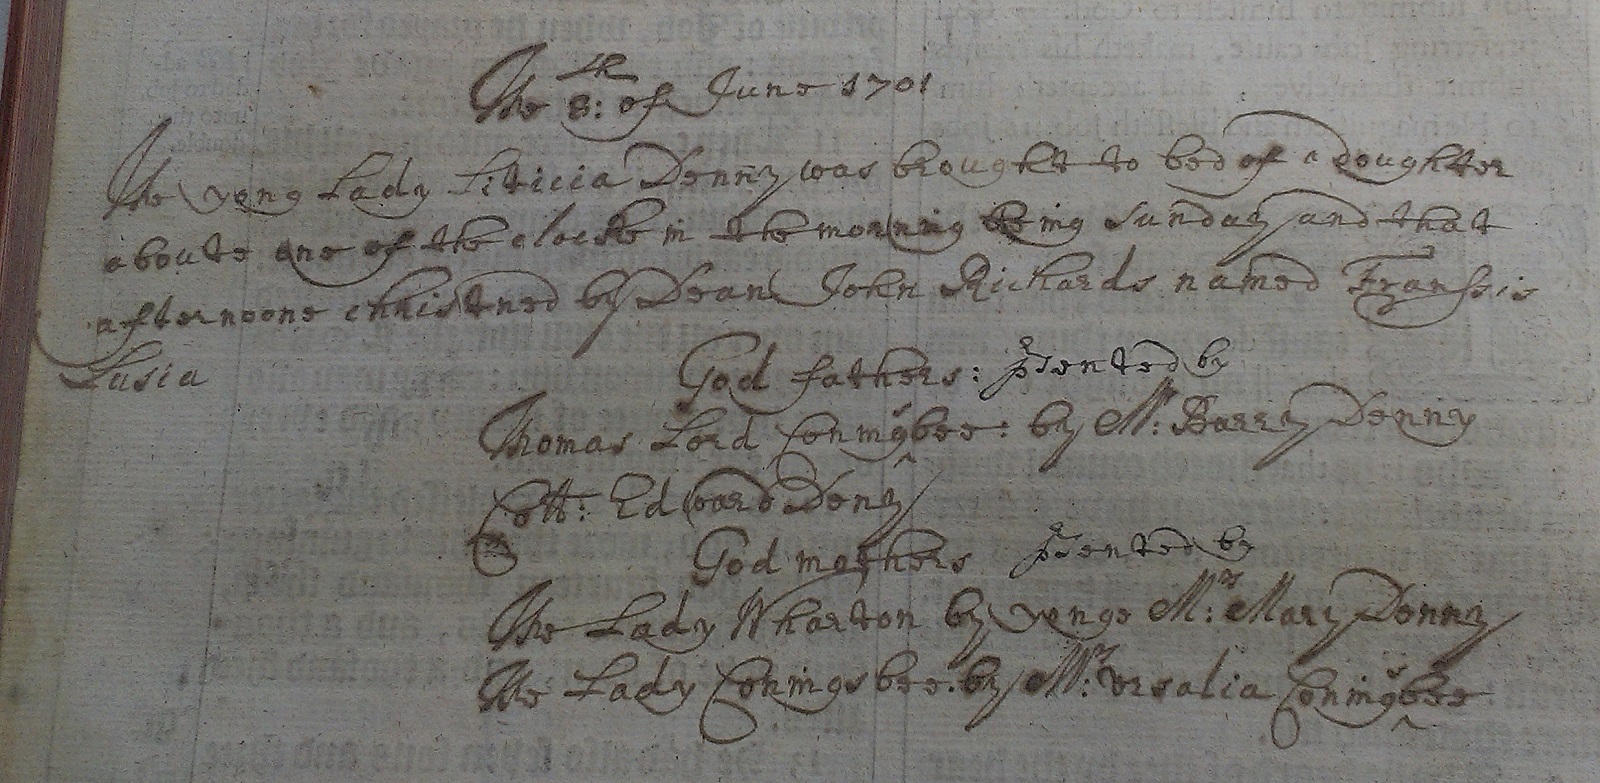 The 8:th of June 1701
The yeng Lady Liticia Denny was brought to bed of a doughter
aboute one of the clocke in the morning being Sunday and that
afternoone christned by Dean John Richards named Franssis
Lusia
God fathers: psented by
Thomas Lord Coningsbee: by Mr: Barry Denny
Coll: Edward Deny
God mothers psented by
The Lady Wharton by yenge Mrs: Mary Denny
The Lady Coningsbee. by Mrs: Ursalia Coningsbee